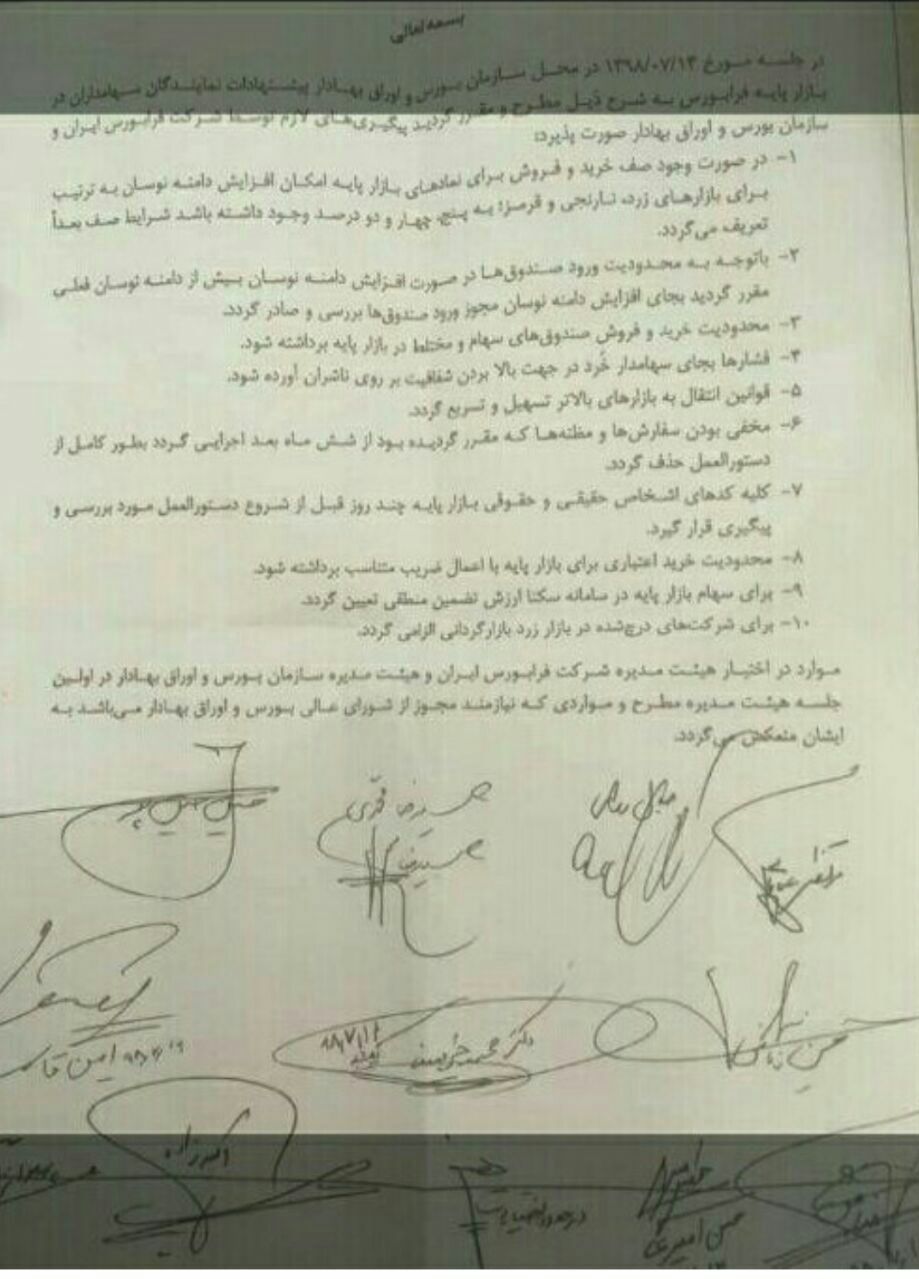 بسمه تعالی
در جلسه مورخ ۱۳۹۸/۰۷/۱۳ در محل سازمان بورس و اوراق بهادار پیشنهادات نمایندگان سهامداران در
بازار پایه فرابورس به شرح ذیل مطرح و مقرر گردید پیگیری‌های لازم توسط شرکت فرابورس ایران و
سازمان بورس و اوراق بهادار صورت پذیرد:
۱- در صورت وجود صف خرید و فروش برای نمادهای بازار پایه امکان افزایش دامنه نوسان به ترتیب
برای بازارهای زرد، نارنجی و قرمز؛ به پنج، چهار و دو درصد وجود داشته باشد شرایط صف بعداً
تعریف می‌گردد.
۲- باتوجه به محدودیت ورود صندوق‌ها در صورت افزایش دامنه نوسان بیش از دامنه نوسان فعلی
مقرر گردید بجای افزایش دامنه نوسان مجوز ورود صندوق‌ها بررسی و صادر گردد.
۳- محدودیت خرید و فروش صندوق‌های سهام و مختلط در بازار پایه برداشته شود.
۴- فشارها بجای سهامدار خُرد در جهت بالا بردن شفافیت بر روی ناشران آورده شود.
۵- قوانین انتقال به بازارهای بالاتر تسهیل و تسریع گردد.
۶- مخفی بودن سفارش‌ها و مظنه‌ها که مقرر گردیده بود از شش ماه بعد اجرایی گردد بطور کامل از
دستورالعمل حذف گردد.
۷- کلیه کدهای اشخاص حقیقی و حقوقی بازار پایه چند روز قبل از شروع دستورالعمل مورد بررسی و
پیگیری قرار گیرد.
۸- محدودیت خرید اعتباری برای بازار پایه با اعمال ضریب متناسب برداشته شود.
۹- برای سهام بازار پایه در سامانه سکنا ارزش تضمین منطقی تعیین گردد.
۱۰- برای شرکت‌های درج‌شده در بازار زرد بازارگردانی الزامی گردد.
موارد در اختیار هیئت مدیره شرکت فرابورس ایران و هیئت مدیره سازمان بورس و اوراق بهادار در اولین
جلسه هیئت مدیره مطرح و مواردی که نیازمند مجوز از شورای عالی بورس و اوراق بهادار می‌باشد به
ایشان منعکس می‌گردد.
حمیدرضا
دکتر محمد
امین
اکبرزاده
محسن امیری